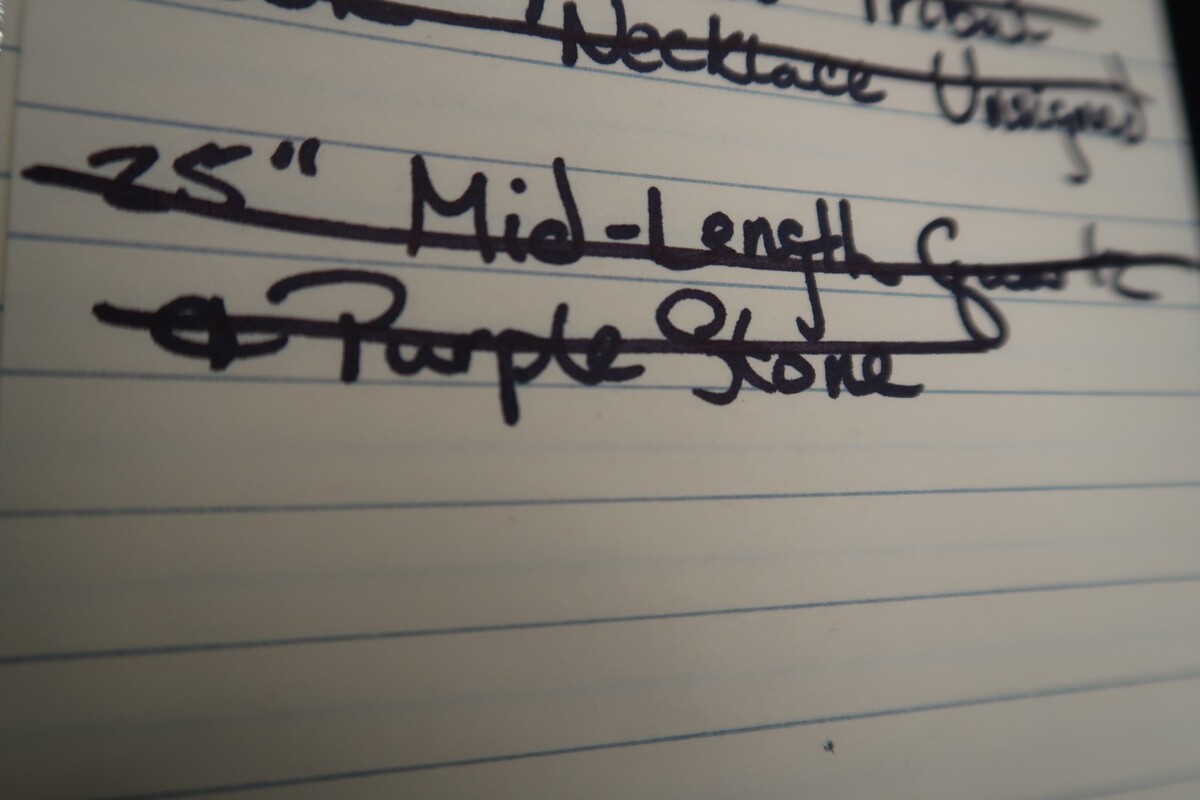 Tribal
Necklace Unsigned
25" Mid-Length Quartz
& Purple Stone